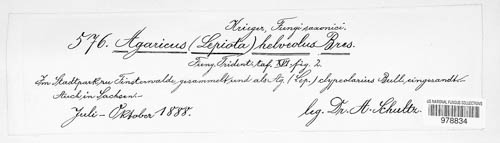 Krieger, Fungi saxonici.
576. Agaricus (Lepiota) helveolus Bres.
Fung. Trident. taf. XVI. fig. 2.
Im Stadtpark zu Finsterwalde gesammelt und als Ag. (Lep.) clypeolarius Bull. eingesandt.
Auch in Sachsen.
Juli-Oktober 1888.
leg. Dr. A. Schultz.
US NATIONAL FUNGUS COLLECTIONS
978834